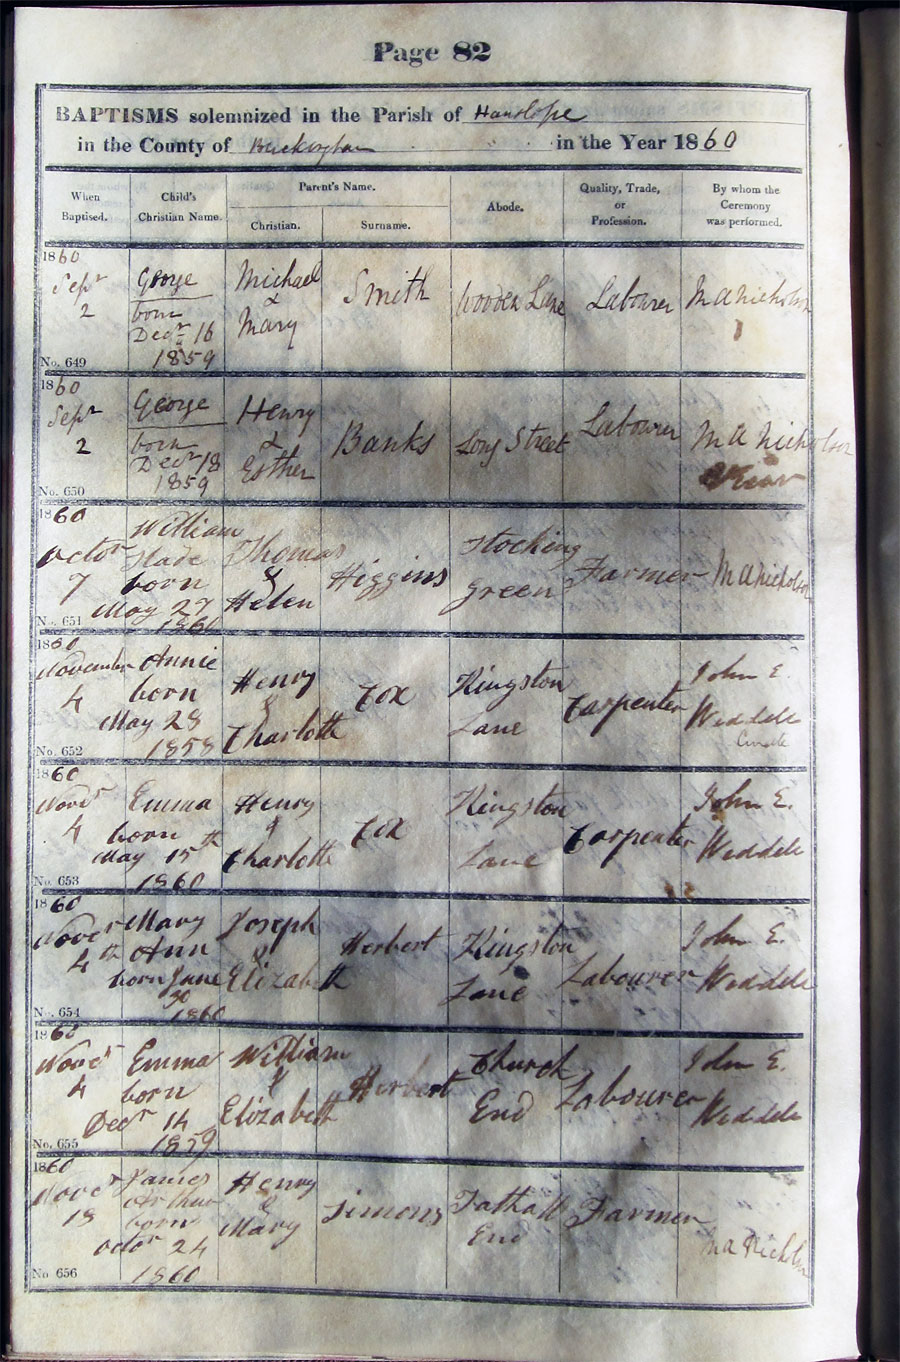 Page 82
BAPTISMS solemnized in the Parish of Hanslope
in the County of Buckingham in the Year 1860
When Baptised.
Child's Christian Name.
Parent's Name.
Christian.
Surname.
Abode.
Quality, Trade, or Profession.
By whom the Ceremony was performed.
1860
Septr
2
No. 649
George
born
Decr 16
1859
Michael
&
Mary
Smith
Wooden Lane
Labourer
M A Nicholson
1860
Septr
2
No. 650
George
born
Decr 18
1859
Henry
&
Esther
Banks
Long Street
Labourer
M A Nicholson
Vicar
1860
Octor
7
No. 651
William
Slade
born
May 27
1860
Thomas
&
Helen
Higgins
Stocking
Green
Farmer
M A Nicholson
1860
November
4
No. 652
Annie
born
May 28
1858
Henry
&
Charlotte
Cox
Kingston
Lane
Carpenter
John E.
Weddell
Curate
1860
Novr
4
No. 653
Emma
born
May 15th
1860
Henry
&
Charlotte
Cox
Kingston
Lane
Carpenter
John E.
Weddell
1860
Novr
4th
No. 654
Mary
Ann
born June
30
1860
Joseph
&
Elizabeth
Herbert
Kingston
Lane
Labourer
John E.
Weddell
1860
Novr
4
No. 655
Emma
born
Decr 14
1859
William
&
Elizabeth
Herbert
Church
End
Labourer
John E.
Weddell
1860
Novr
18
No 656
James
Arthur
born
Octor 24
1860
Henry
&
Mary
Simons
Tathall
End
Farmer
M A Nicholson